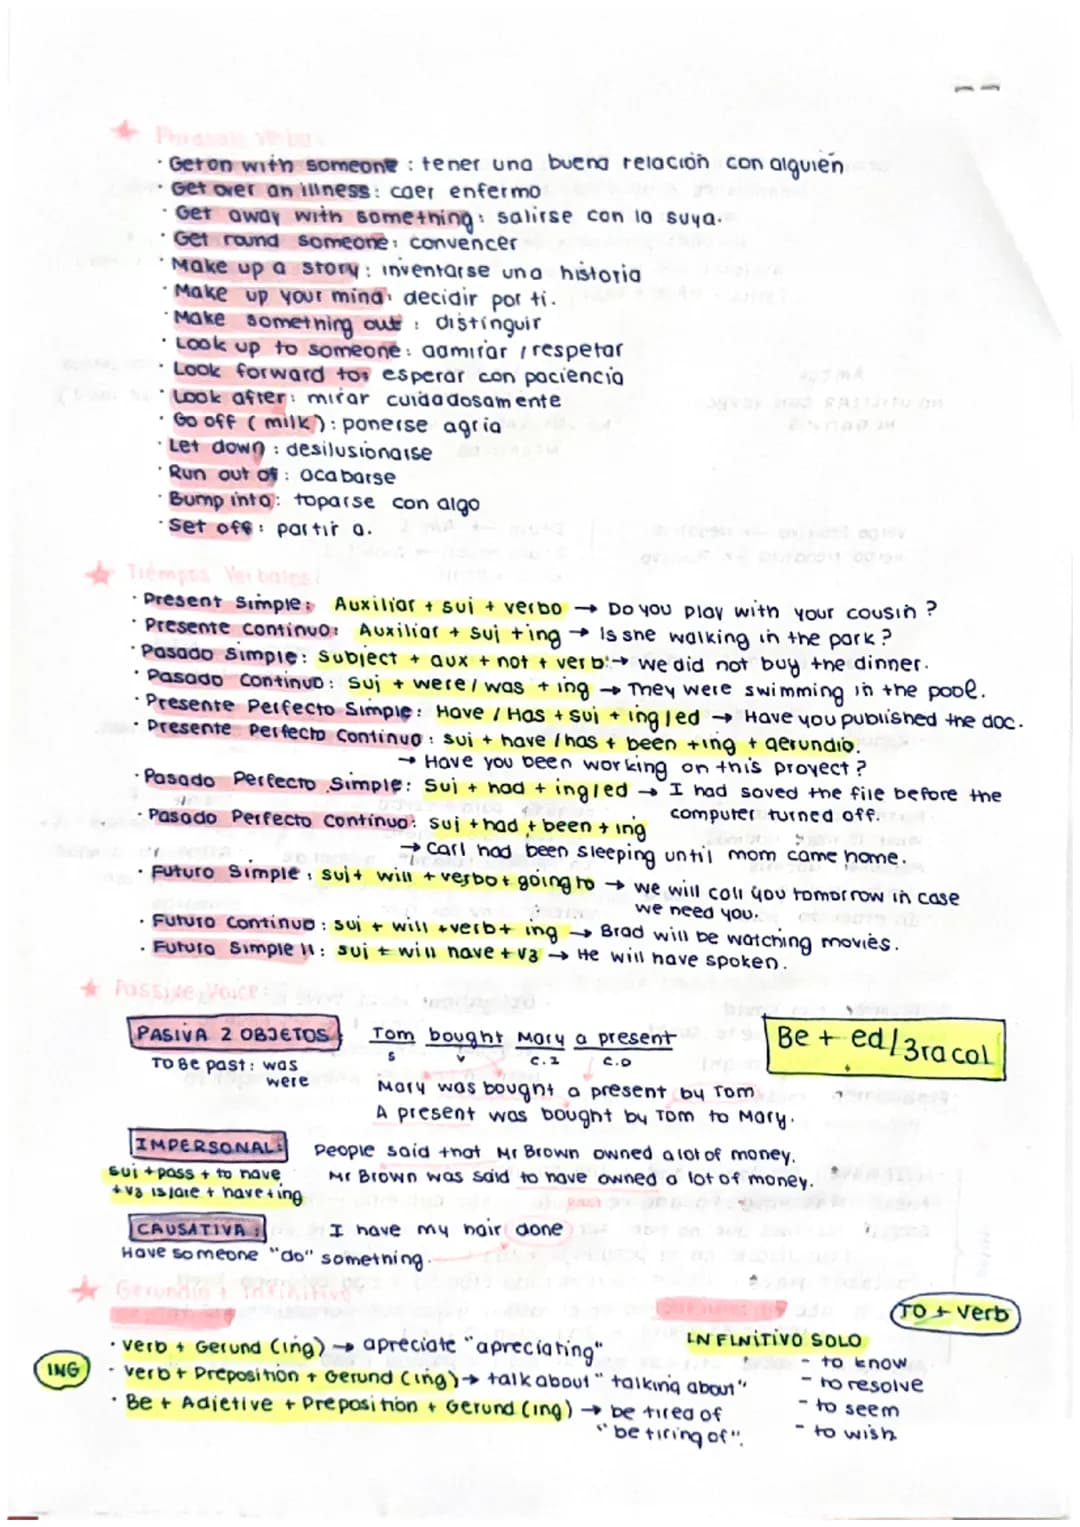 Phrasals Verbs:
· Get on with someone : tener una buena relación con alguien
· Get over an illness: caer enfermo
· Get away with something: salirse con la suya.
· Get round someone: convencer
· Make up a story: inventarse una historia
· Make up your mind: decidir por ti.
· Make something out : distinguir
· Look up to someone: admirar / respetar
· Look forward to: esperar con paciencia
· Look after: mirar cuidadosamente
· Go off ( milk ): ponerse agria
· Let down : desilusionarse
· Run out of : acabarse
· Bump into: toparse con algo
· Set off: partir a.
Tiempos Verbales:
· Present Simple: Auxiliar + suj + verbo → Do you play with your cousin ?
· Presente continuo: Auxiliar + suj + ing → Is she walking in the park ?
· Pasado Simple: Subject + aux + not + verb: → we did not buy the dinner.
· Pasado Continuo: Suj + were / was + ing → They were swimming in the pool.
· Presente Perfecto Simple: Have / Has + suj + ing / ed → Have you published the doc.
· Presente Perfecto Continuo: suj + have / has + been + ing + gerundio.
→ Have you been working on this proyect ?
· Pasado Perfecto Simple: Suj + had + ing/ed → I had saved the file before the
computer turned off.
· Pasado Perfecto Continuo: suj + had + been + ing
→ Carl had been sleeping until mom came home.
· Futuro Simple : suj + will + verbo + going to → we will call you tomorrow in case
we need you.
· Futuro Continuo: suj + will + verb + ing → Brad will be watching movies.
· Futuro Simple II: suj + will have + v3 → He will have spoken.
Passive Voice:
PASIVA 2 OBJETOS Tom bought Mary a present Be + ed / 3ra col
S V C.I C.D
TO Be past: was
were
Mary was bought a present by Tom
A present was bought by Tom to Mary.
IMPERSONAL: People said that Mr Brown owned a lot of money.
suj + pass + to have Mr Brown was said to have owned a lot of money.
+ v3 is/are + have + ing
CAUSATIVA: I have my hair done
Have someone "do" something.
Gerundio + Infinitivo
TO + Verb
INFINITIVO SOLO
· verb + Gerund (ing) → apreciate "apreciating"
- to know
ING
· verb + Preposition + Gerund (ing) → talk about "talking about"
- to resolve
· Be + Adjetive + Preposition + Gerund (ing) → be tired of
- to seem
"be tiring of".
- to wish